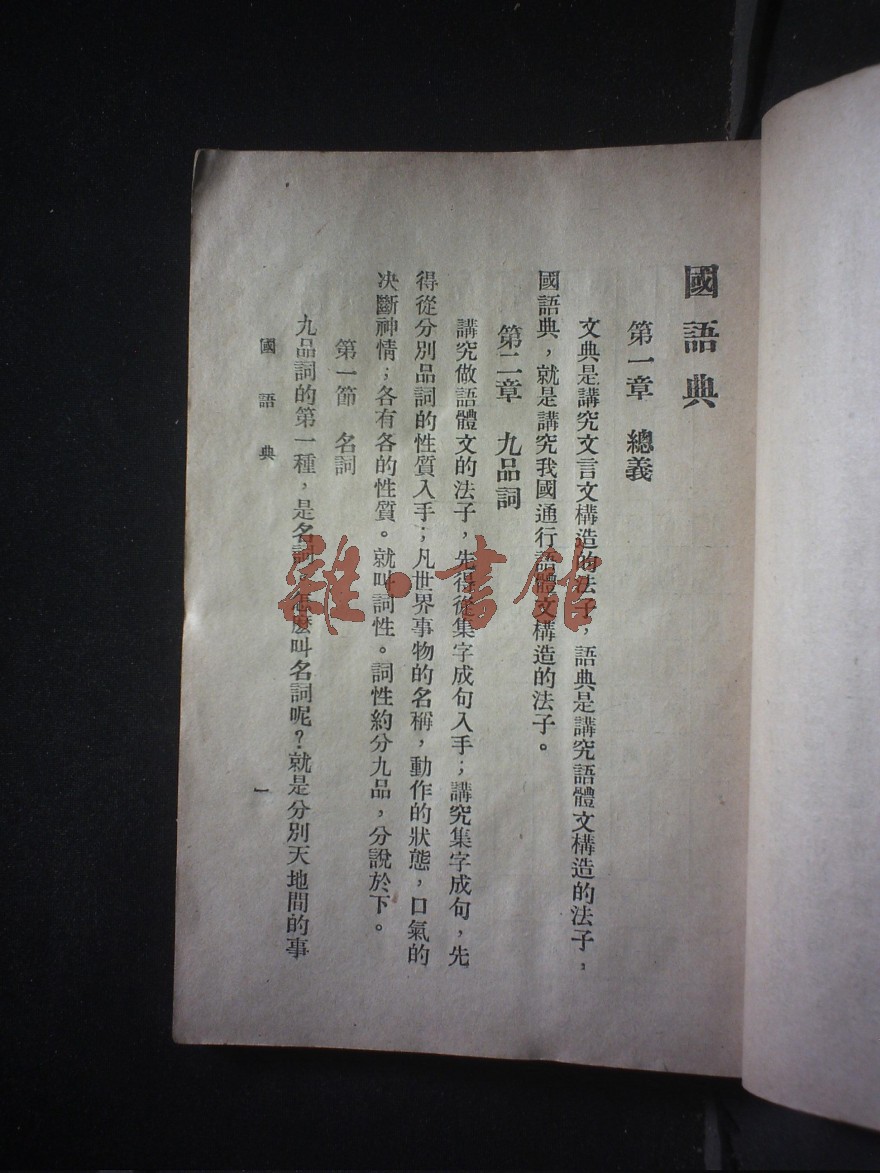 國語典
第一章　總義
文典是講究文言文構造的法子，語典是講究語體文構造的法子，
國語典，就是講究我國通行語體文構造的法子。
第二章　九品詞
講究做語體文的法子，先得從集字成句入手；講究集字成句，先
得從分別品詞的性質入手；凡世界事物的名稱，動作的狀態，口氣的
决斷神情；各有各的性質。就叫詞性。詞性約分九品，分說於下。
第一節　名詞
九品詞的第一種，是名詞。怎麼叫名詞呢？就是分別天地間的事
國語典　一
雜·書館